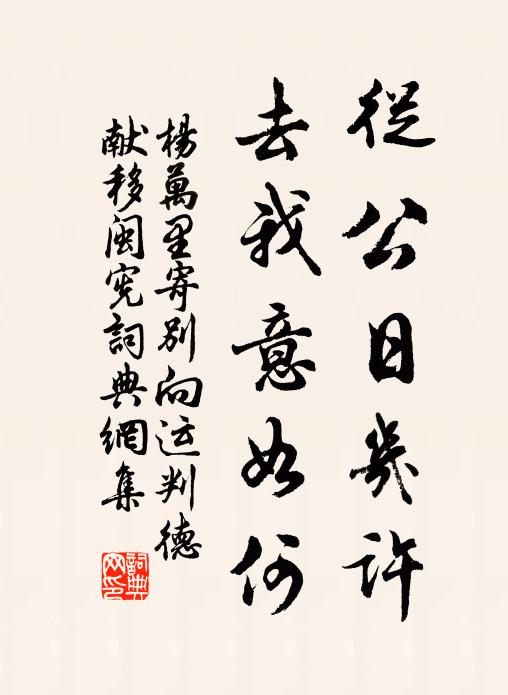 從公日幾許
去我意如何
楊萬里寄別向运判德
献移闽宪詞典網集
詞典
网印